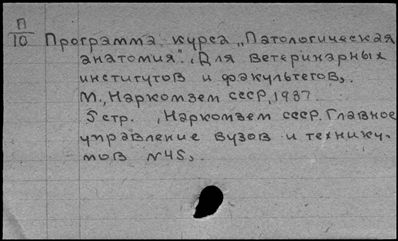 П
10
Программа курса „Патологическая
анатомия". Для ветеринарных
институтов и факультетов,.
М., Наркомзем СССР, 1937
5 стр. , Наркомзем СССР. Главное
управление вузов и технику-
мов №45,.